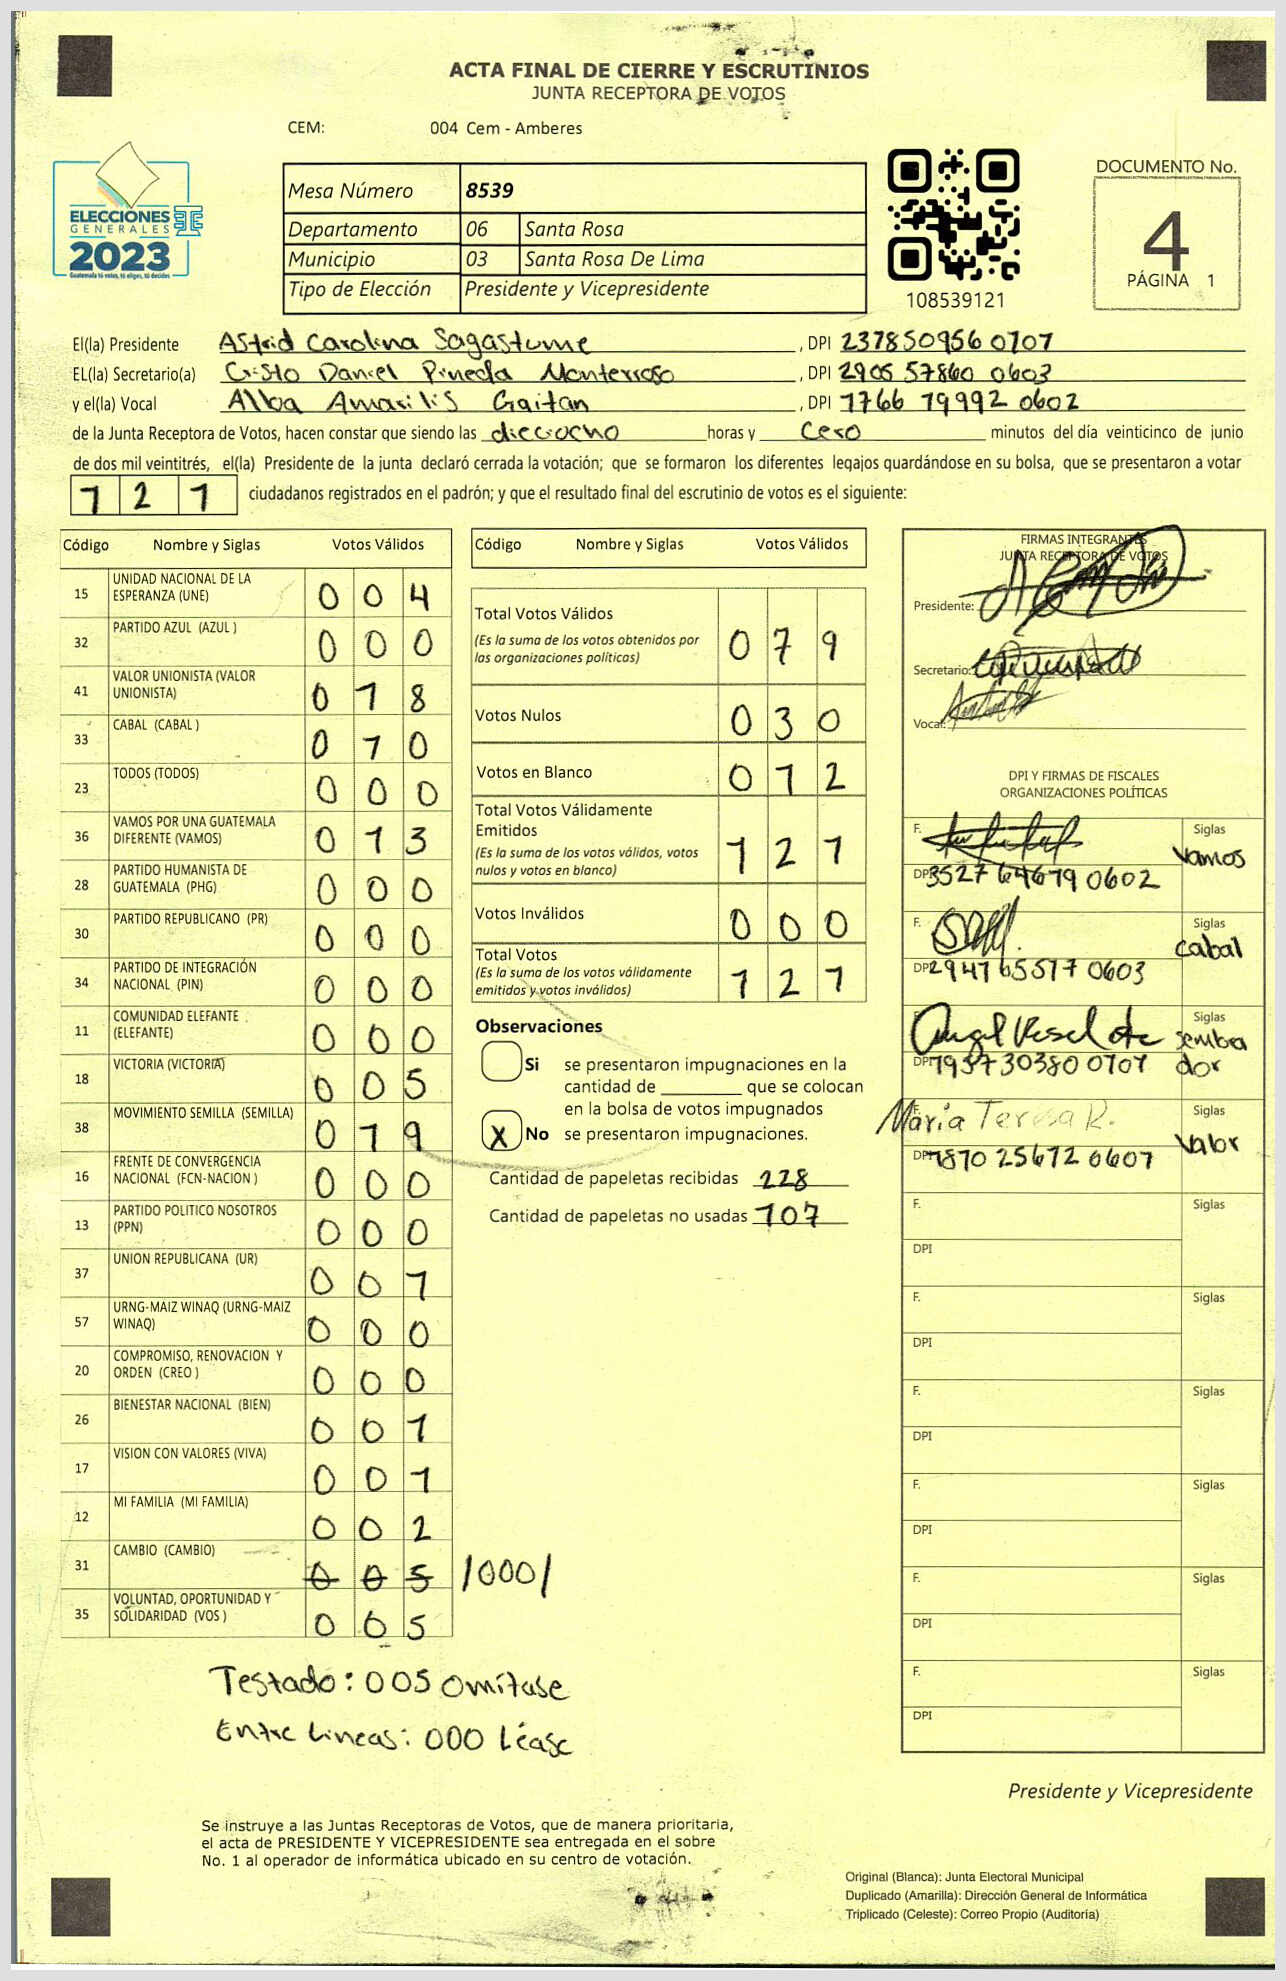 ACTA FINAL DE CIERRE Y ESCRUTINIOS
JUNTA RECEPTORA DE VOTOS
CEM: 004 Cem - Amberes
ELECCIONES
GENERALES
2023
Guatemala tú votas, tú eliges, tú decides
Mesa Número 8539
Departamento 06 Santa Rosa
Municipio 03 Santa Rosa De Lima
Tipo de Elección Presidente y Vicepresidente
108539121
DOCUMENTO No.
4
PÁGINA 1
El(la) Presidente Astrid Carolina Sagastume , DPI
EL(la) Secretario(a) Cristo Daniel Pineda Monterroso , DPI 2905 57860 0603
y el(la) Vocal Alba Amarilis Gaitan , DPI
de la Junta Receptora de Votos, hacen constar que siendo las dieciocho horas y Cero minutos del día veinticinco de junio
de dos mil veintitrés, el(la) Presidente de la junta declaró cerrada la votación; que se formaron los diferentes legajos guardándose en su bolsa, que se presentaron a votar
1 2 1 ciudadanos registrados en el padrón; y que el resultado final del escrutinio de votos es el siguiente:
Código Nombre y Siglas Votos Válidos
15 UNIDAD NACIONAL DE LA
ESPERANZA (UNE) 0 0 4
32 PARTIDO AZUL (AZUL ) 0 0 0
41 VALOR UNIONISTA (VALOR
UNIONISTA) 0 1 8
33 CABAL (CABAL ) 0 1 0
23 TODOS (TODOS) 0 0 0
36 VAMOS POR UNA GUATEMALA
DIFERENTE (VAMOS) 0 1 3
28 PARTIDO HUMANISTA DE
GUATEMALA (PHG) 0 0 0
30 PARTIDO REPUBLICANO (PR) 0 0 0
34 PARTIDO DE INTEGRACIÓN
NACIONAL (PIN) 0 0 0
11 COMUNIDAD ELEFANTE
(ELEFANTE) 0 0 0
18 VICTORIA (VICTORIA) 0 0 5
38 MOVIMIENTO SEMILLA (SEMILLA) 0 1 9
16 FRENTE DE CONVERGENCIA
NACIONAL (FCN-NACION ) 0 0 0
13 PARTIDO POLITICO NOSOTROS
(PPN) 0 0 0
37 UNION REPUBLICANA (UR) 0 0 1
57 URNG-MAIZ WINAQ (URNG-MAIZ
WINAQ) 0 0 0
20 COMPROMISO, RENOVACION Y
ORDEN (CREO ) 0 0 0
26 BIENESTAR NACIONAL (BIEN) 0 0 1
17 VISION CON VALORES (VIVA) 0 0 1
12 MI FAMILIA (MI FAMILIA) 0 0 2
31 CAMBIO (CAMBIO) 0 0 5 /000/
35 VOLUNTAD, OPORTUNIDAD Y
SOLIDARIDAD (VOS ) 0 0 5
Testado: 005 omítase
Entre lineas: 000 Léase
Código Nombre y Siglas Votos Válidos
Total Votos Válidos
(Es la suma de los votos obtenidos por
las organizaciones políticas) 0 7 9
Votos Nulos 0 3 0
Votos en Blanco 0 1 2
Total Votos Válidamente
Emitidos
(Es la suma de los votos válidos, votos
nulos y votos en blanco) 1 2 1
Votos Inválidos 0 0 0
Total Votos
(Es la suma de los votos válidamente
emitidos y votos inválidos) 1 2 1
Observaciones
Si se presentaron impugnaciones en la
cantidad de ________ que se colocan
en la bolsa de votos impugnados
X No se presentaron impugnaciones.
Cantidad de papeletas recibidas 228
Cantidad de papeletas no usadas 107
FIRMAS INTEGRANTES
JUNTA RECEPTORA DE VOTOS
Presidente:
Secretario:
Vocal:
DPI Y FIRMAS DE FISCALES
ORGANIZACIONES POLÍTICAS
F. Siglas
Vamos
DPI
F. Siglas
cabal
DPI
F. Siglas
sembra
dor
DPI
F. Maria Teresa R. Siglas
Valor
DPI
F. Siglas
DPI
F. Siglas
DPI
F. Siglas
DPI
F. Siglas
DPI
F. Siglas
DPI
F. Siglas
DPI
Presidente y Vicepresidente
Se instruye a las Juntas Receptoras de Votos, que de manera prioritaria,
el acta de PRESIDENTE Y VICEPRESIDENTE sea entregada en el sobre
No. 1 al operador de informática ubicado en su centro de votación.
Original (Blanca): Junta Electoral Municipal
Duplicado (Amarilla): Dirección General de Informática
Triplicado (Celeste): Correo Propio (Auditoría)